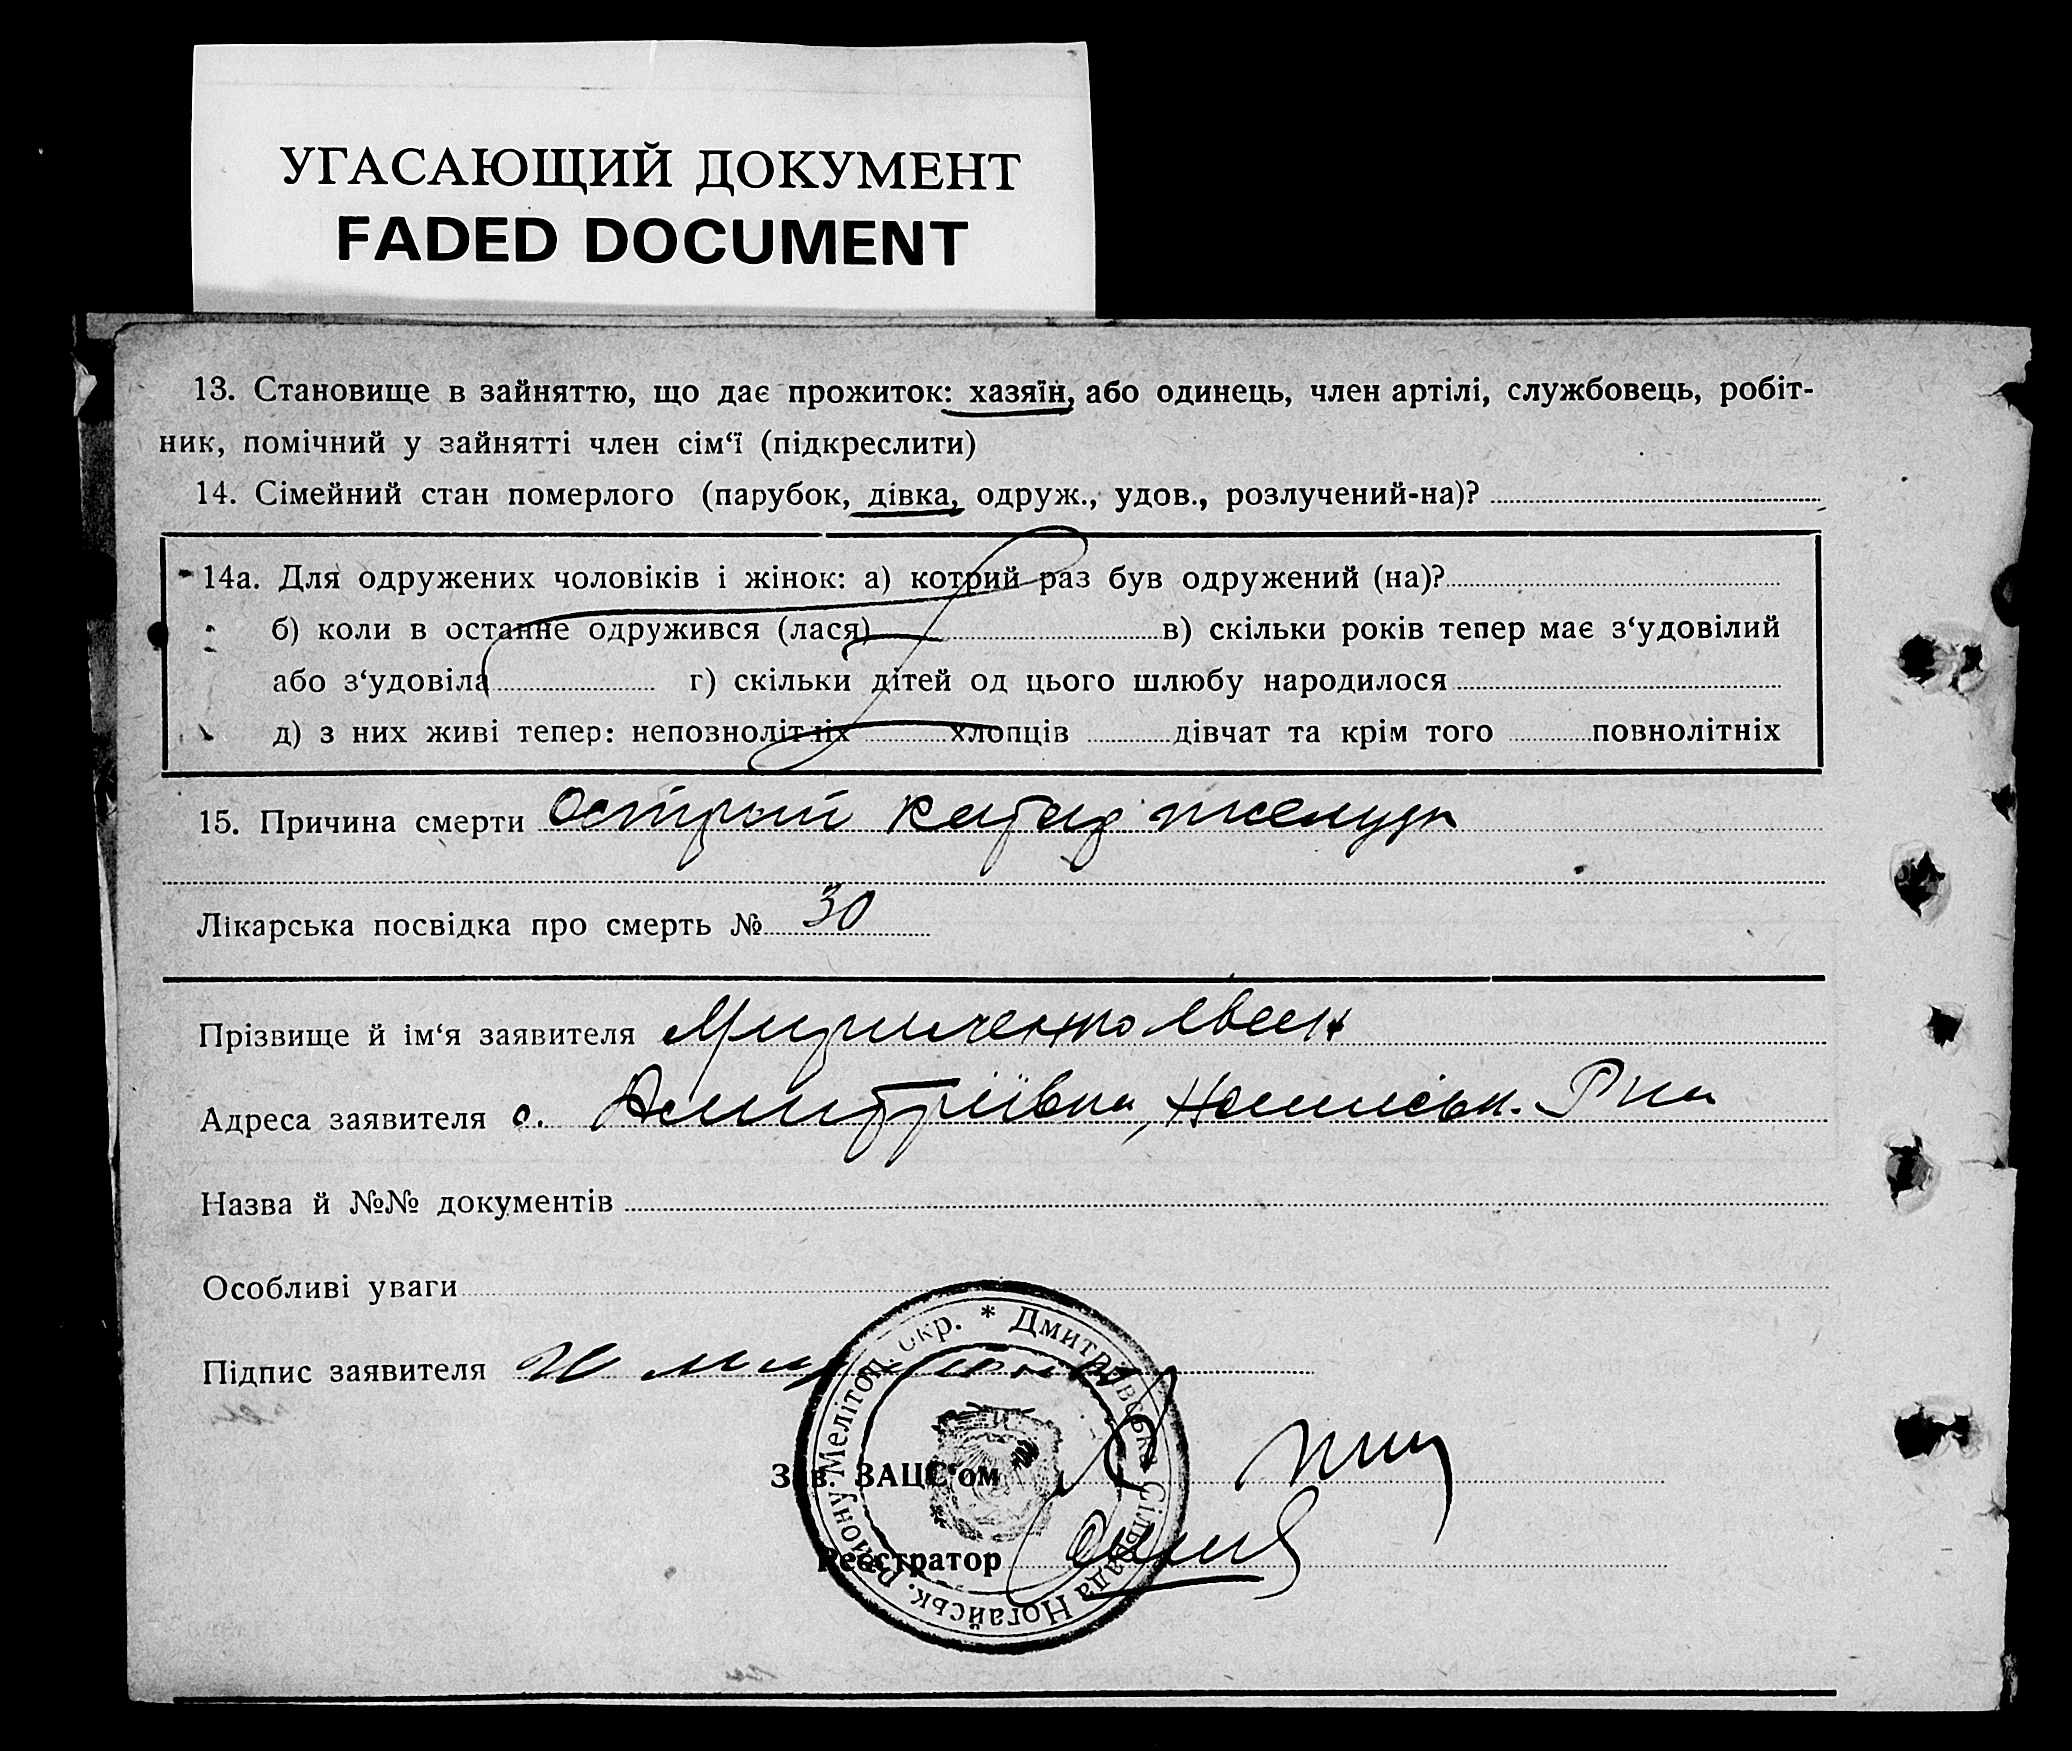 УГАСАЮЩИЙ ДОКУМЕНТ
FADED DOCUMENT
13. Становище в зайняттю, що дає прожиток: хазяїн, або одинець, член артілі, службовець, робіт-
ник, помічний у зайнятті член сім‘ї (підкреслити)
14. Сімейний стан померлого (парубок, дівка, одруж., удов., розлучений-на)?
14а. Для одружених чоловіків і жінок: а) котрий раз був одружений (на)?
б) коли в останнє одружився (лася) в) скільки років тепер має з‘удовілий
або з‘удовіла г) скільки дітей од цього шлюбу народилося
д) з них живі тепер: неповнолітніх хлопців дівчат та крім того повнолітніх
15. Причина смерти Острий катар желудк
Лікарська посвідка про смерть № 30
Прізвище й ім‘я заявителя
Адреса заявителя с. Дмитріївка,
Назва й №№ документів
Особливі уваги
Підпис заявителя
Зав. ЗАЦС‘ом
Реєстратор
* Дмитрівська Сільрада Ногайськ. Району. Мелітоп. Окр.